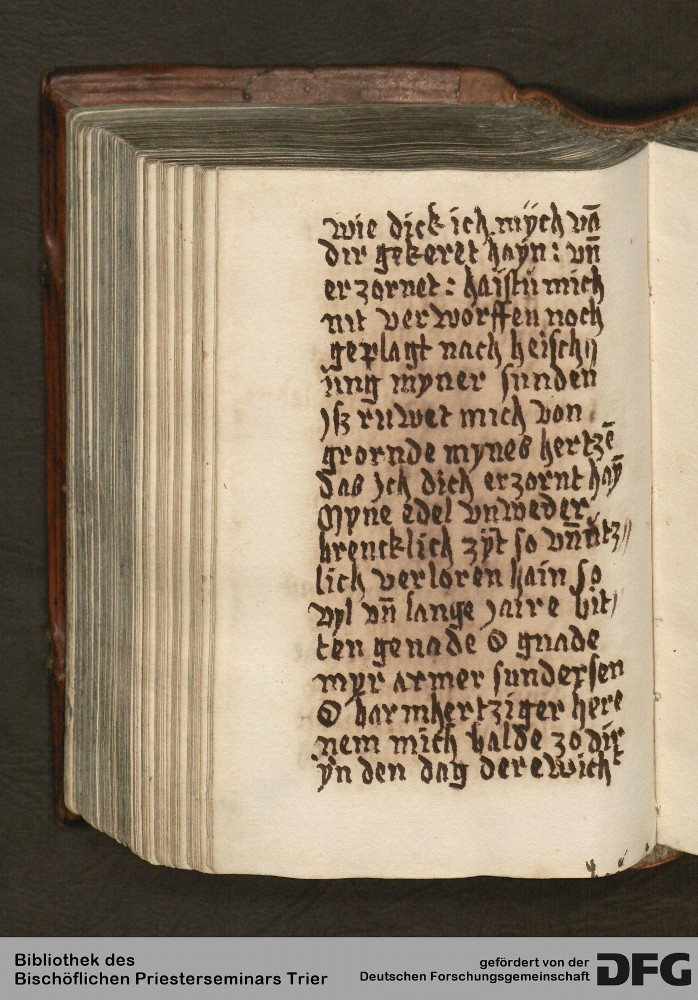 wie dick ich mÿch vā
dir gekeret haÿn : vn̄
erzornet : haistu mich
nit verworffen noch
geplagt nach heisch⸗
ūng myner sunden
jsz ruwet mich von
grornde mynes hertzē
das jch dich erzornt haȳ
Myne edel vnweder
brencklich zÿt so vn̄ūtz⸗
lich verloren hain so
vyl vn̄ lange jaire bit⸗
ten genade O gnade
myr armer sundersen
O barmhertziger here
nem mich balde zo dir
ÿn den dag der ewich
Bibliothek des
Bischöflichen Priesterseminars Trier
gefördert von der
Deutschen Forschungsgemeinschaft DFG